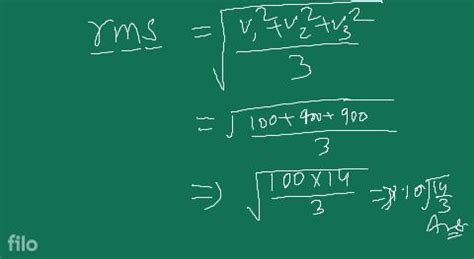 rms = √(v₁² + v₂² + v₃² / 3)
= √(100 + 400 + 900 / 3)
⇒ √(100 × 14 / 3) ⇒ 10√(14/3)
Ans
filo